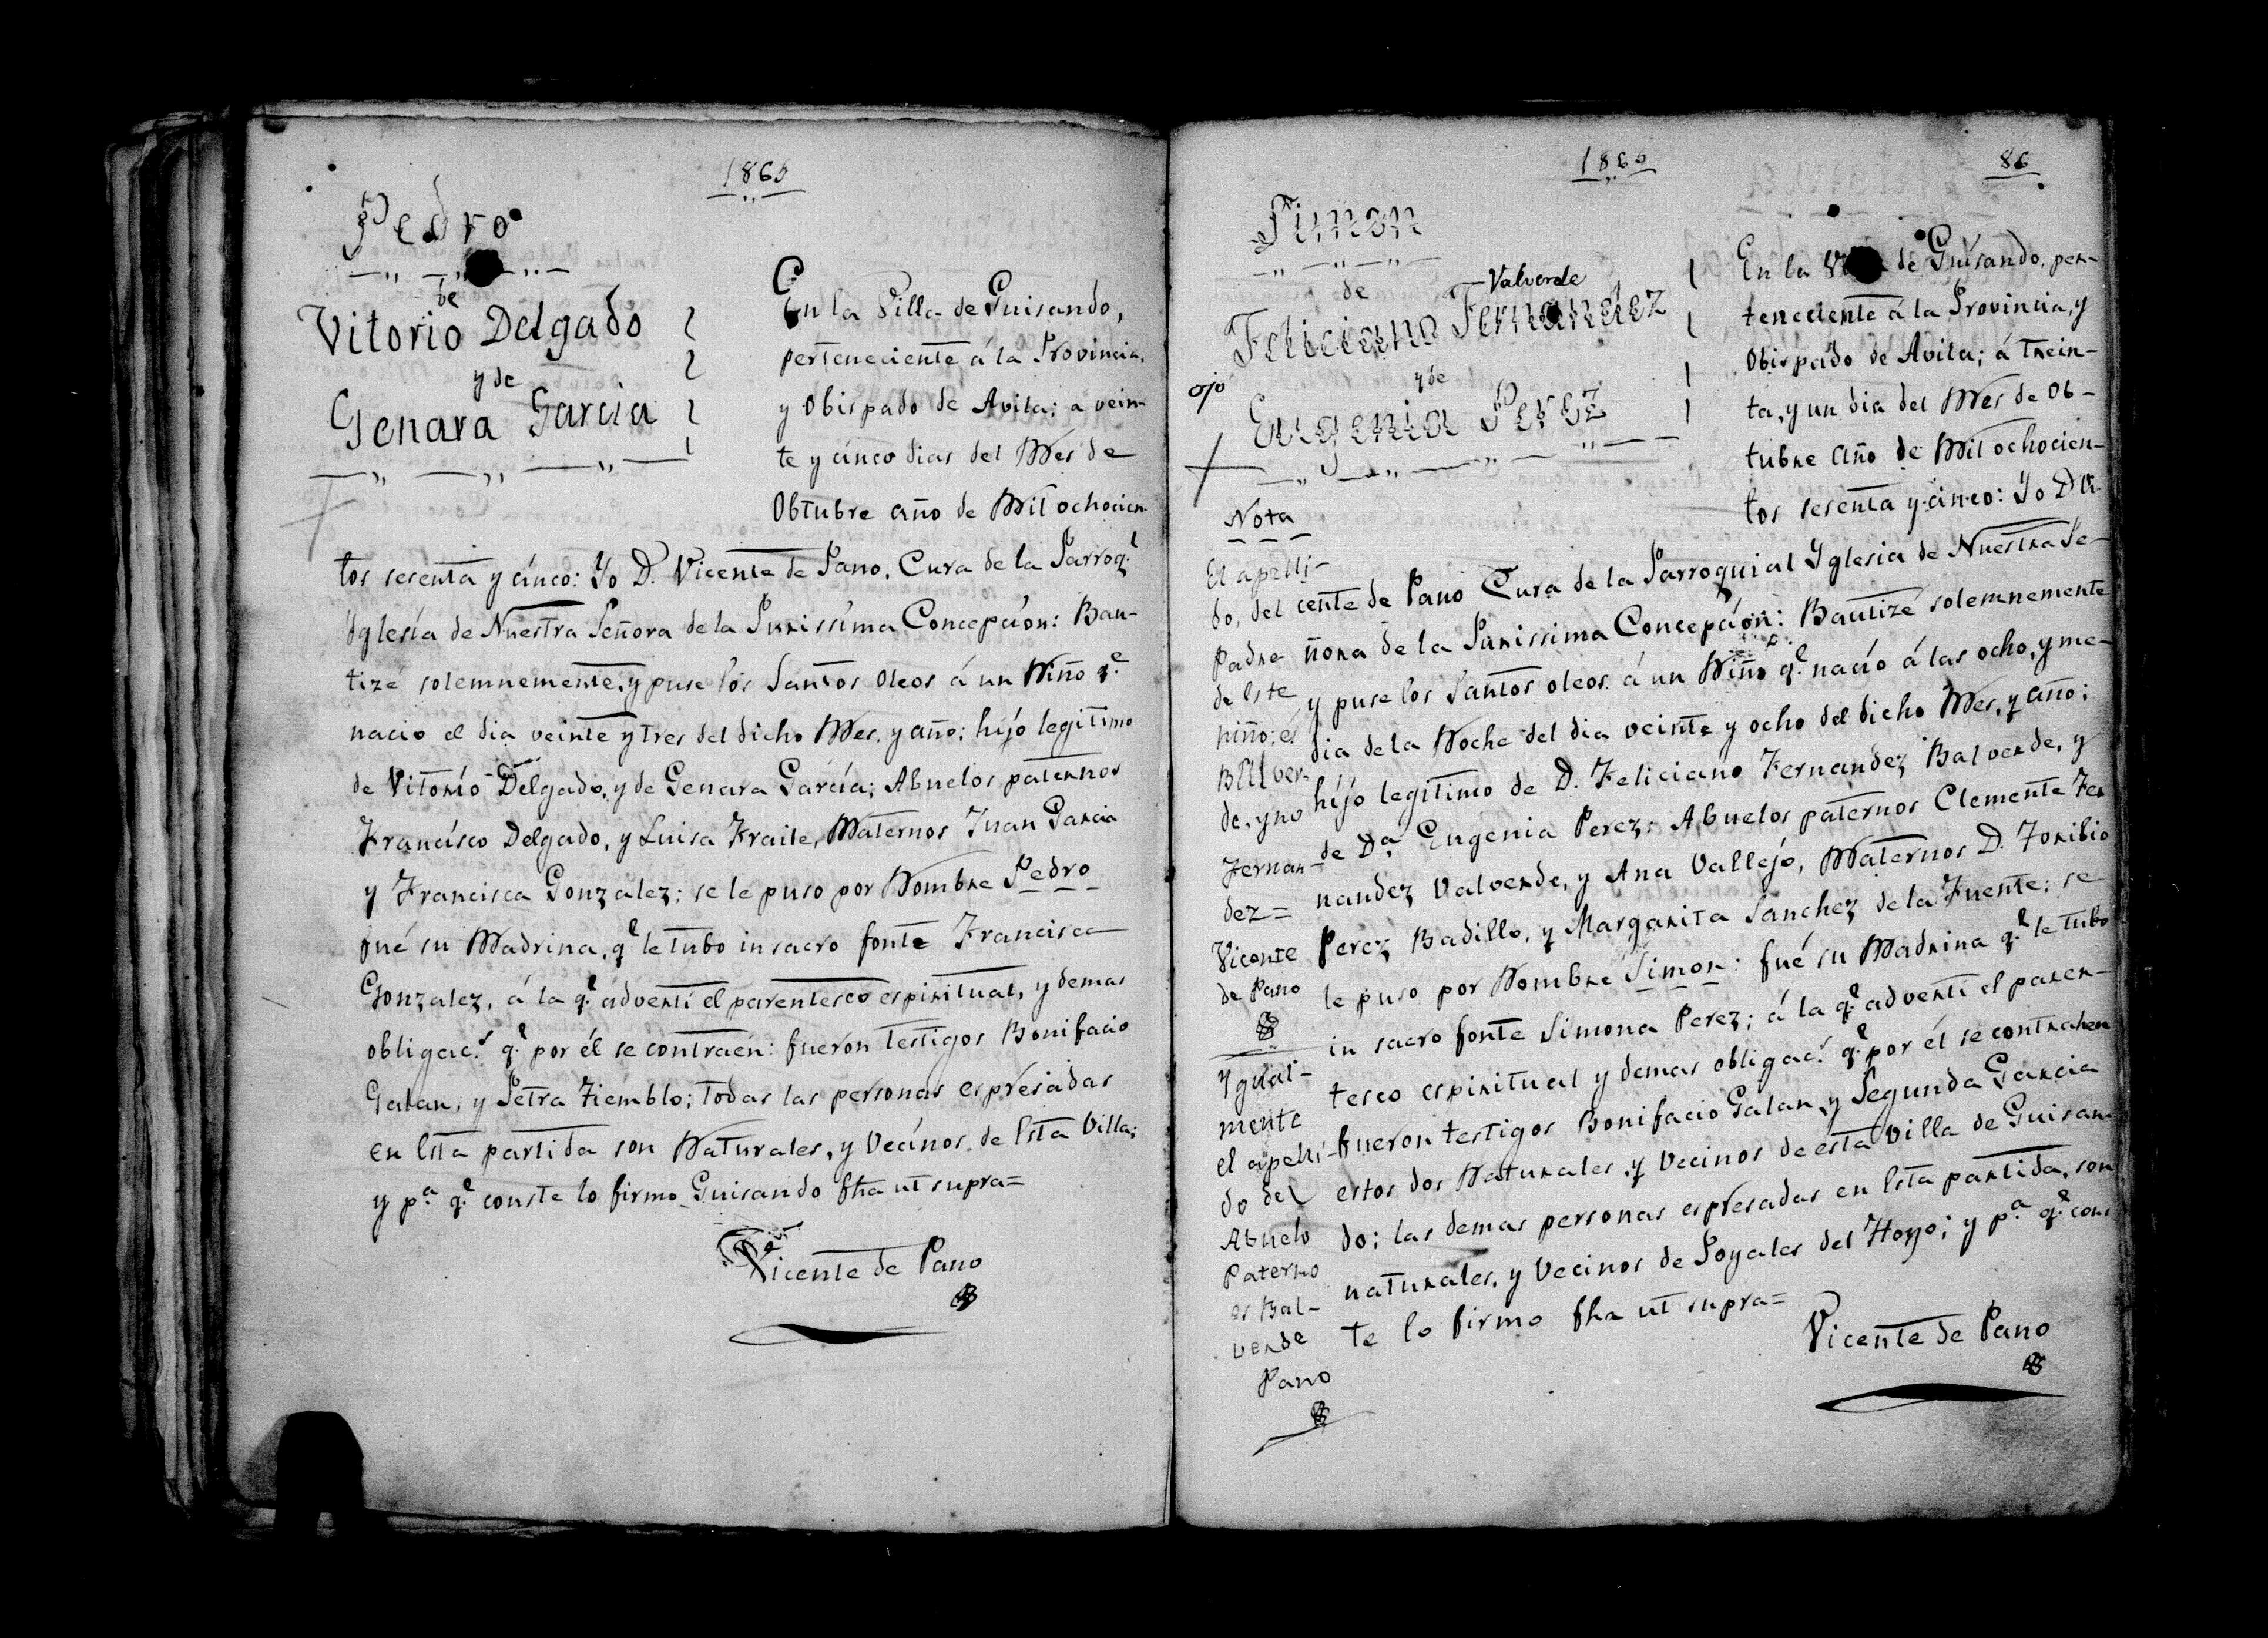 1865
Pedro
de
Vitorio Delgado
y de
Genara Garcia
En la Villa de Guisando,
perteneciente á la Provincia,
y Obispado de Avila; a vein-
te y cinco dias del Mes de
Obtubre año de Mil ochocien-
tos sesenta y cinco: Yo D. Vicente de Pano, Cura de la Parroq.l
Yglesía de Nuestra Señora de la Purissíma Concepcíon: Bau-
tizé solemnemente, y puse los Santos Oleos á un Niño q.e
nacio el dia veinte y tres del dicho Mes, y año; hijo legitimo
de Vitorío Delgado, y de Genara García; Abuelos paternos
Francísco Delgado, y Luisa Fraile, Maternos Juan Garcia
y Francisca Gonzalez; se le puso por Nombre Pedro
fué su Madrina, q.e le tubo in sacro fonte Francisca
Gonzalez, á la q.e advertí el parentesco espiritual, y demas
obligac.s q.e por él se contraén: fueron testigos Bonifacio
Galan, y Petra Tiemblo; todas las personas espresadas
en Esta partida son Naturales, y Vecínos de Esta Villa;
y p.a q.e conste lo firmo Guisando fha ut supra=
Vicente de Pano
1865
86
Simon
de
Valverde
Feliciano Fernandez
y de
ojo
Eugenia Perez
En la de Guísando, per-
teneciente á la Provincia, y
Obispado de Avila; á trein-
ta, y un dia del Mes de Ob-
tubre año de Mil ochocien-
tos sesenta y cinco: Yo D. Vi-
cente de Pano Cura de la Parroquial Yglesia de Nuestra Se-
ñora de la Purissima Concepcíon: Bautizé solemnemente
y puse los Santos oleos á un Niño q.e nacío á las ocho, y me-
dia de la Noche del dia veinte y ocho del dicho Mes, y año;
híjo legitimo de D. Feliciano Fernandez Balverde, y
de D.a Eugenia Perez; Abuelos paternos Clemente Fer
nandez Valverde, y Ana Vallejo, Maternos D. Toribio
Perez Badillo, y Margarita Sanchez de la Fuente; se
le puso por Nombre Simon: fué su Madrina q.e le tubo
in sacro fonte Simona Perez; á la q.e advertí el paren-
tesco espiritual y demas obligac.s q.e por él se contrahen
fueron testigos Bonifacio Galan, y Segunda Garcia
estos dos Naturales, y Vecinos de esta Villa de Guisan-
do; las demas personas espresadas en Esta partida, son
naturales, y Vecinos de Poyales del Hoyo; y p.a q.e cons
te lo firmo fha ut supra=
Vicente de Pano
Nota
El apelli-
do, del
Padre
de Este
niño; es
Balver-
de, y no
Fernan-
dez=
Vicente
de Pano
Ygual-
mente
el apelli-
do del
Abuelo
Paterno
es Bal-
verde
Pano